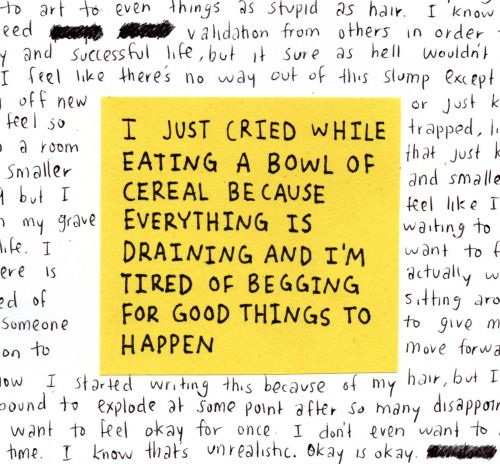 to art to even things as stupid as hair. I know
eed validation from others in order
y and successful life, but it sure as hell wouldn't
I feel like there's no way out of this slump except
off new or just k
feel so trapped, li
a room that just k
smaller and smalle
but I feel like I
my grave waiting to
life. I want to f
ere is actually w
ed of sitting aro
someone to give m
on to move forwa
I JUST CRIED WHILE
EATING A BOWL OF
CEREAL BECAUSE
EVERYTHING IS
DRAINING AND I'M
TIRED OF BEGGING
FOR GOOD THINGS TO
HAPPEN
ow I started writing this because of my hair, but I
bound to explode at some point after so many disappoin
want to feel okay for once. I don't even want to
time. I know that's unrealistic. Okay is okay.